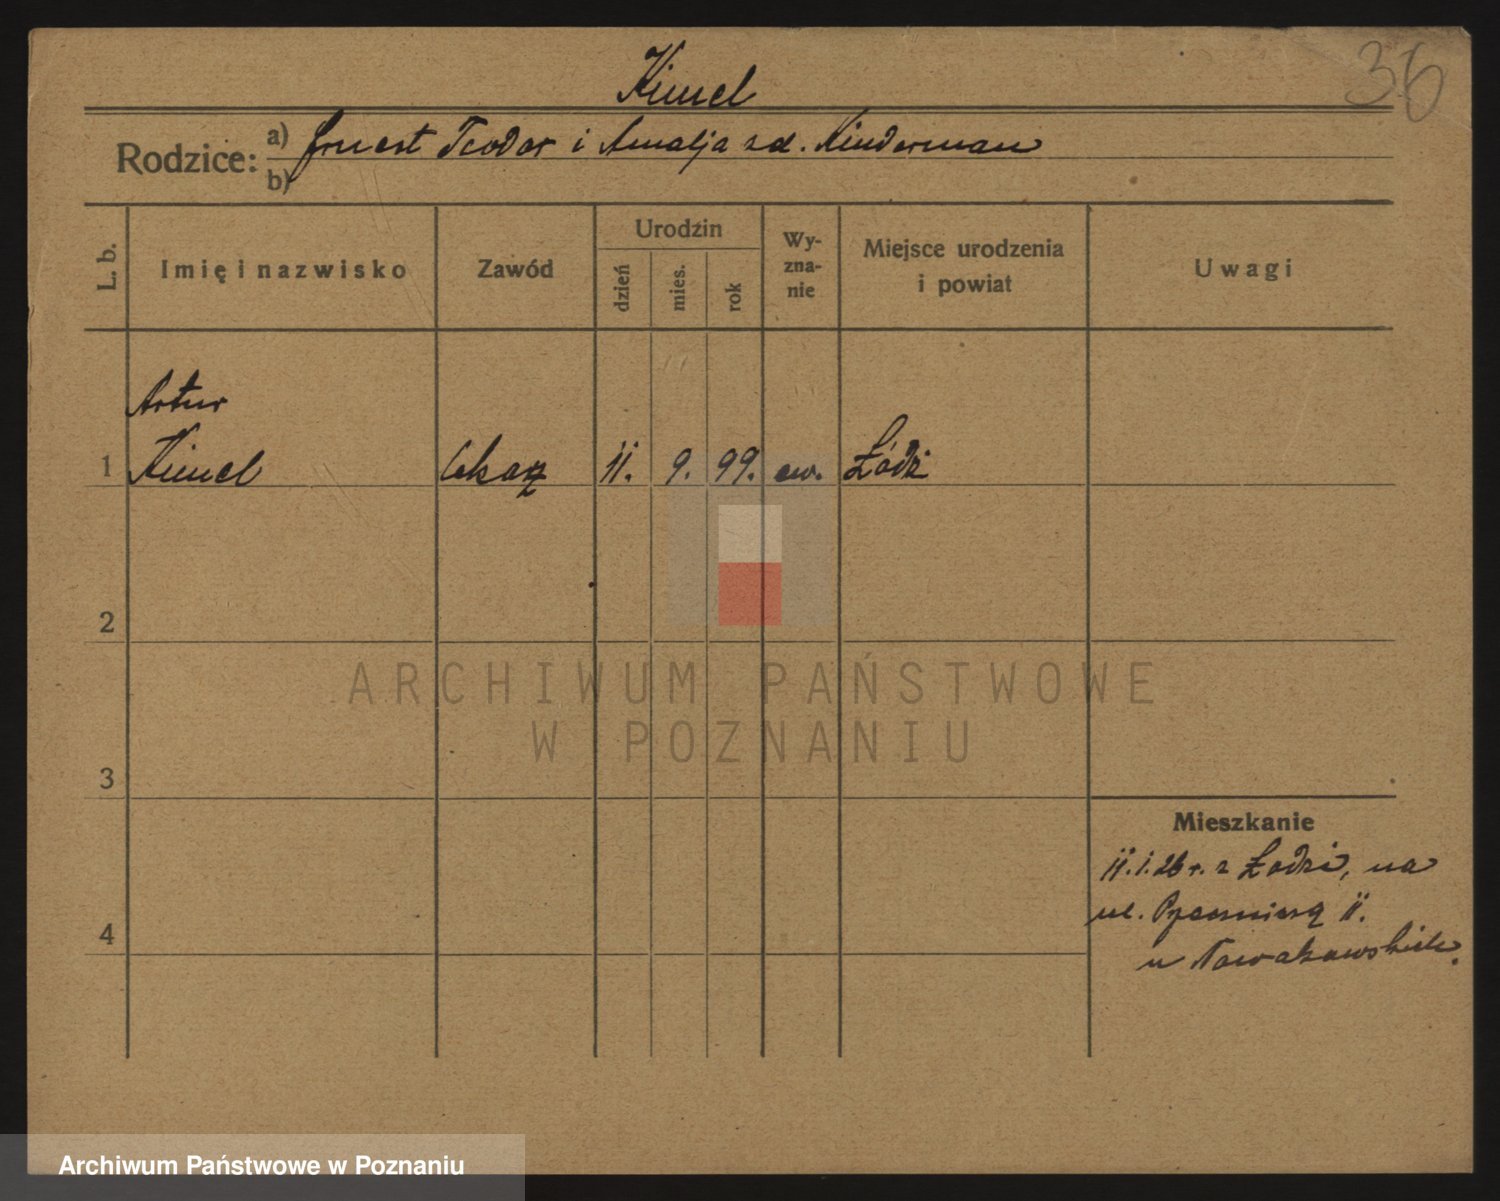 36
Kimel
Rodzice:
a) Ernest Teodor i Amalja zd. Kinderman
b)
L. b.
Imię i nazwisko
Zawód
Urodzin
dzień
mies.
rok
Wy-
zna-
nie
Miejsce urodzenia
i powiat
Uwagi
Artur
1 Kimel 11. 9. 99. ew. Łódź
2
3
4
Mieszkanie
11.1.26 r. z Łodzi, na
ul. 11.
u
ARCHIWUM PAŃSTWOWE
W POZNANIU
Archiwum Państwowe w Poznaniu